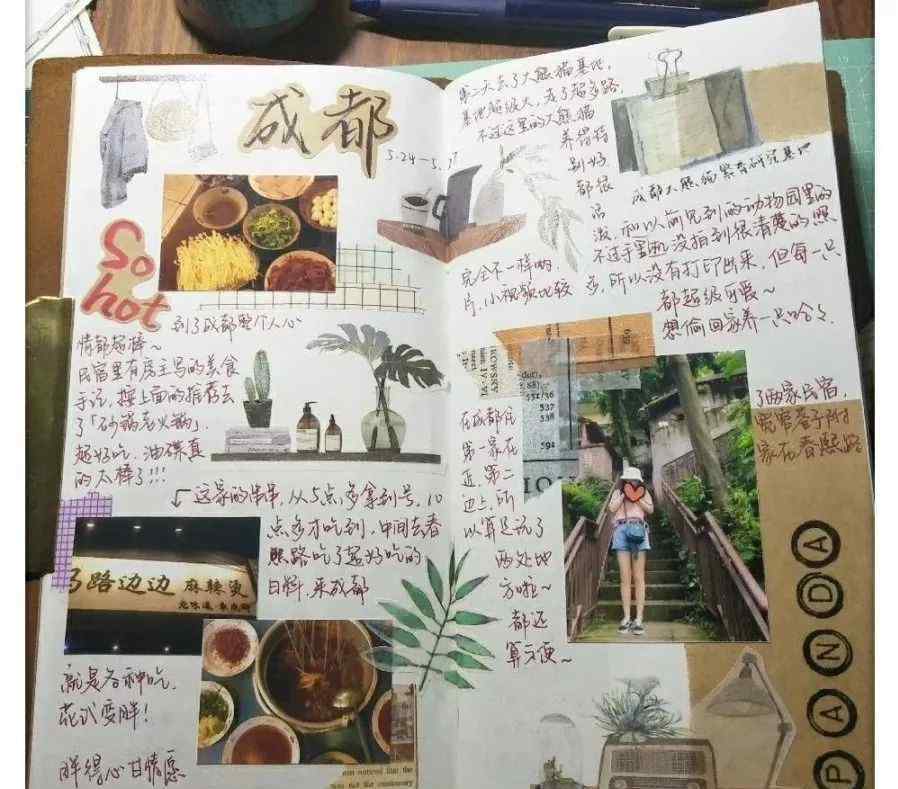 成都
5.24-5.27
So
hot
到了成都整个人心
情都超棒~
民宿里有房主写的美食
手记,按上面的推荐去
了「砂锅老火锅」,
超好吃,油碟真
的太棒了!!!
这家的串串,从5点多拿到号,10
点多才吃到,中间去春
熙路吃了超好吃的
日料,来成都
路边边 麻辣烫
就是各种吃,
花式变胖!
胖得心甘情愿
第二天去了大熊猫基地,
基地超级大,走了超多路,
不过这里的大熊猫
养得特
别好
都很
活
成都大熊猫繁育研究基地
泼,和以前见到的动物园里的
完全不一样哟,不过手机没拍到很清楚的照
片,小视频比较多,所以没有打印出来,但每一只
都超级可爱~
想偷回家养一只哈哈
551/36
537
538
591
ION
在成都住了两家民宿,
第一家在宽窄巷子附
近,第二家在春熙路
边上,所
以算是玩了
两处地
方啦~
都还
算方便~
PANDA